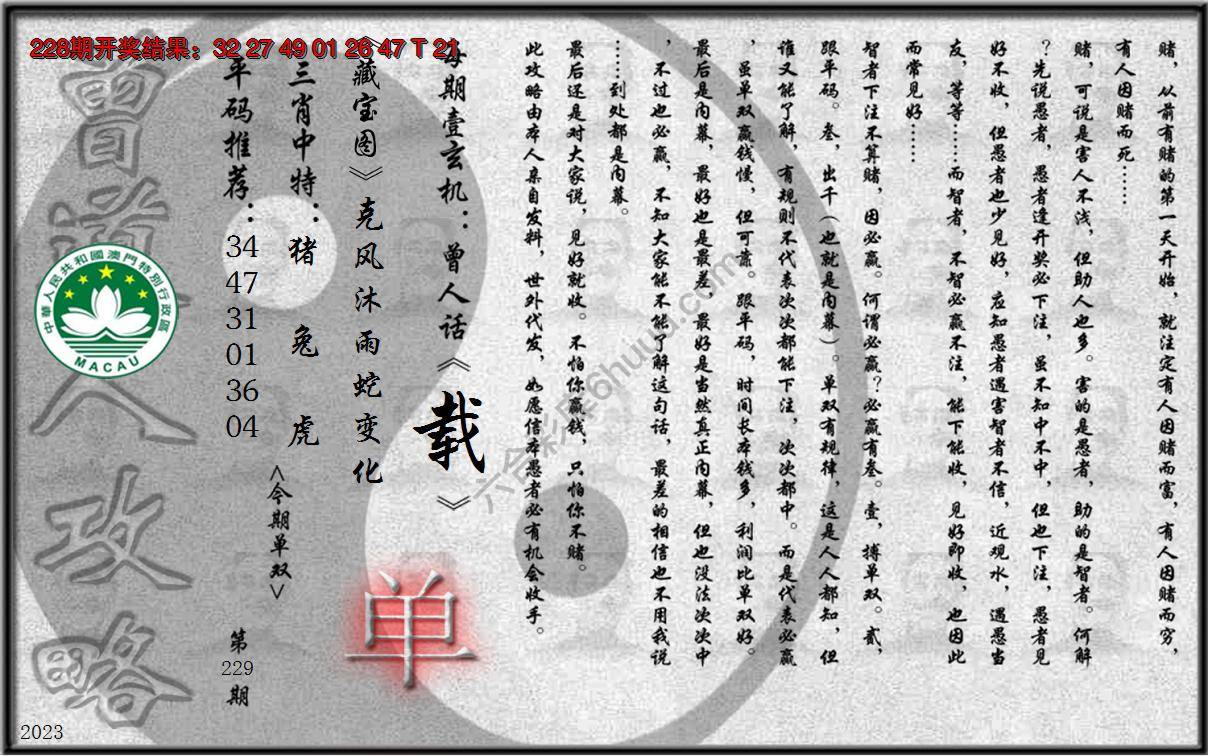 228期开奖结果：32 27 49 01 26 47 T 21
赌，从前有赌的第一天开始，就注定有人因赌而富，有人因赌而穷，
有人因赌而死……
赌，可说是害人不浅，但助人也多。害的是愚者，助的是智者。何解
？先说愚者，愚者逢开奖必下注，虽不知中不中，但也下注，愚者见
好不收，但愚者也少见好，应知愚者遇害智者不信，近观水，遇愚当
友，等等……而智者，不智必赢不注，能下能收，见好即收，也因此
而常见好……
智者下注不算赌，因必赢。何谓必赢？必赢有叁。壹，搏单双。贰，
跟平码。叁，出千（也就是内幕）。单双有规律，这是人人都知，但
谁又能了解，有规则不代表次次都能下注，次次都中。而是代表必赢
，虽单双赢钱慢，但可靠。跟平码，时间长本钱多，利润比单双好。
最后是内幕，最好也是最差，最好是当然真正内幕，但也没法次次中
，不过也必赢，不知大家能不能了解这句话，最差的相信也不用我说
……到处都是内幕。
最后还是对大家说，见好就收。不怕你赢钱，只怕你不赌。
此攻略由本人亲自发料，世外代发，如愿信本愚者必有机会收手。
每期壹玄机：曾人话《载》
《藏宝图》克风沐雨蛇变化
单
三肖中特：猪 兔 虎
<今期单双>
平码推荐：34 47 31 01 36 04
第229期
曾道人攻略
中華人民共和國澳門特別行政區
MACAU
六合彩库6huuu.com
2023